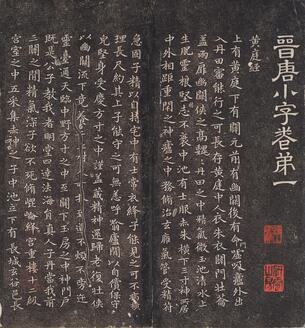 晉唐小字卷弟一
黃庭經
上有黃庭下有關元前有幽闕後有命門噓吸廬外出
入丹田審能行之可長存黃庭中人衣朱衣關門壯籥
蓋兩扉幽闕俠之高魏丹田之中精氣微玉池清水上
生肥靈根堅志不衰中池有士服赤朱橫下三寸神所居
中外相距重閉之神廬之中務脩治玄癰氣管受精符
急固子精以自持宅中有士常衣絳子能見之可不病橫
理長尺約其上子能守之可無恙呼翕廬間以自償保守
完堅身受慶方寸之中謹蓋藏精神還歸老復壯俠
以幽闕流下竟養子玉樹可杖至道不煩不旁迕
靈臺通天臨中野方寸之中至關下玉房之中神門戶
既是公子教我者明堂四達法海員真人子丹當我前
三關之間精氣深子欲不死脩崑崙絳宮重樓十二級
宮室之中五采集赤神之子中池立下有長城玄谷邑長